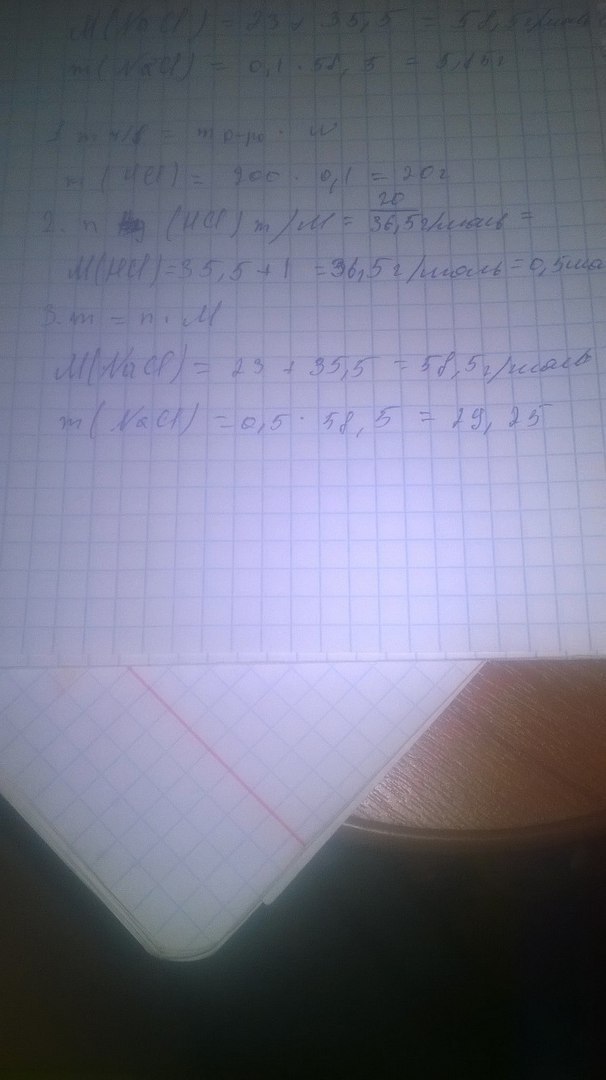 M(NaCl) = 23 + 35,5 = 58,5 г/моль
m(NaCl) = 0,1 · 58,5 = 5,85г
1 m р-ро · w
m (HCl) = 200 · 0,1 = 20г
2 n (HCl) m/M = 20/36,5г/моль =
M(HCl)=35,5+1 =36,5г/моль=0,5мо
3. m = n · M
M(NaCl) = 23 + 35,5 = 58,5г/моль
m( NaCl) =0,5 · 58,5 = 29,25